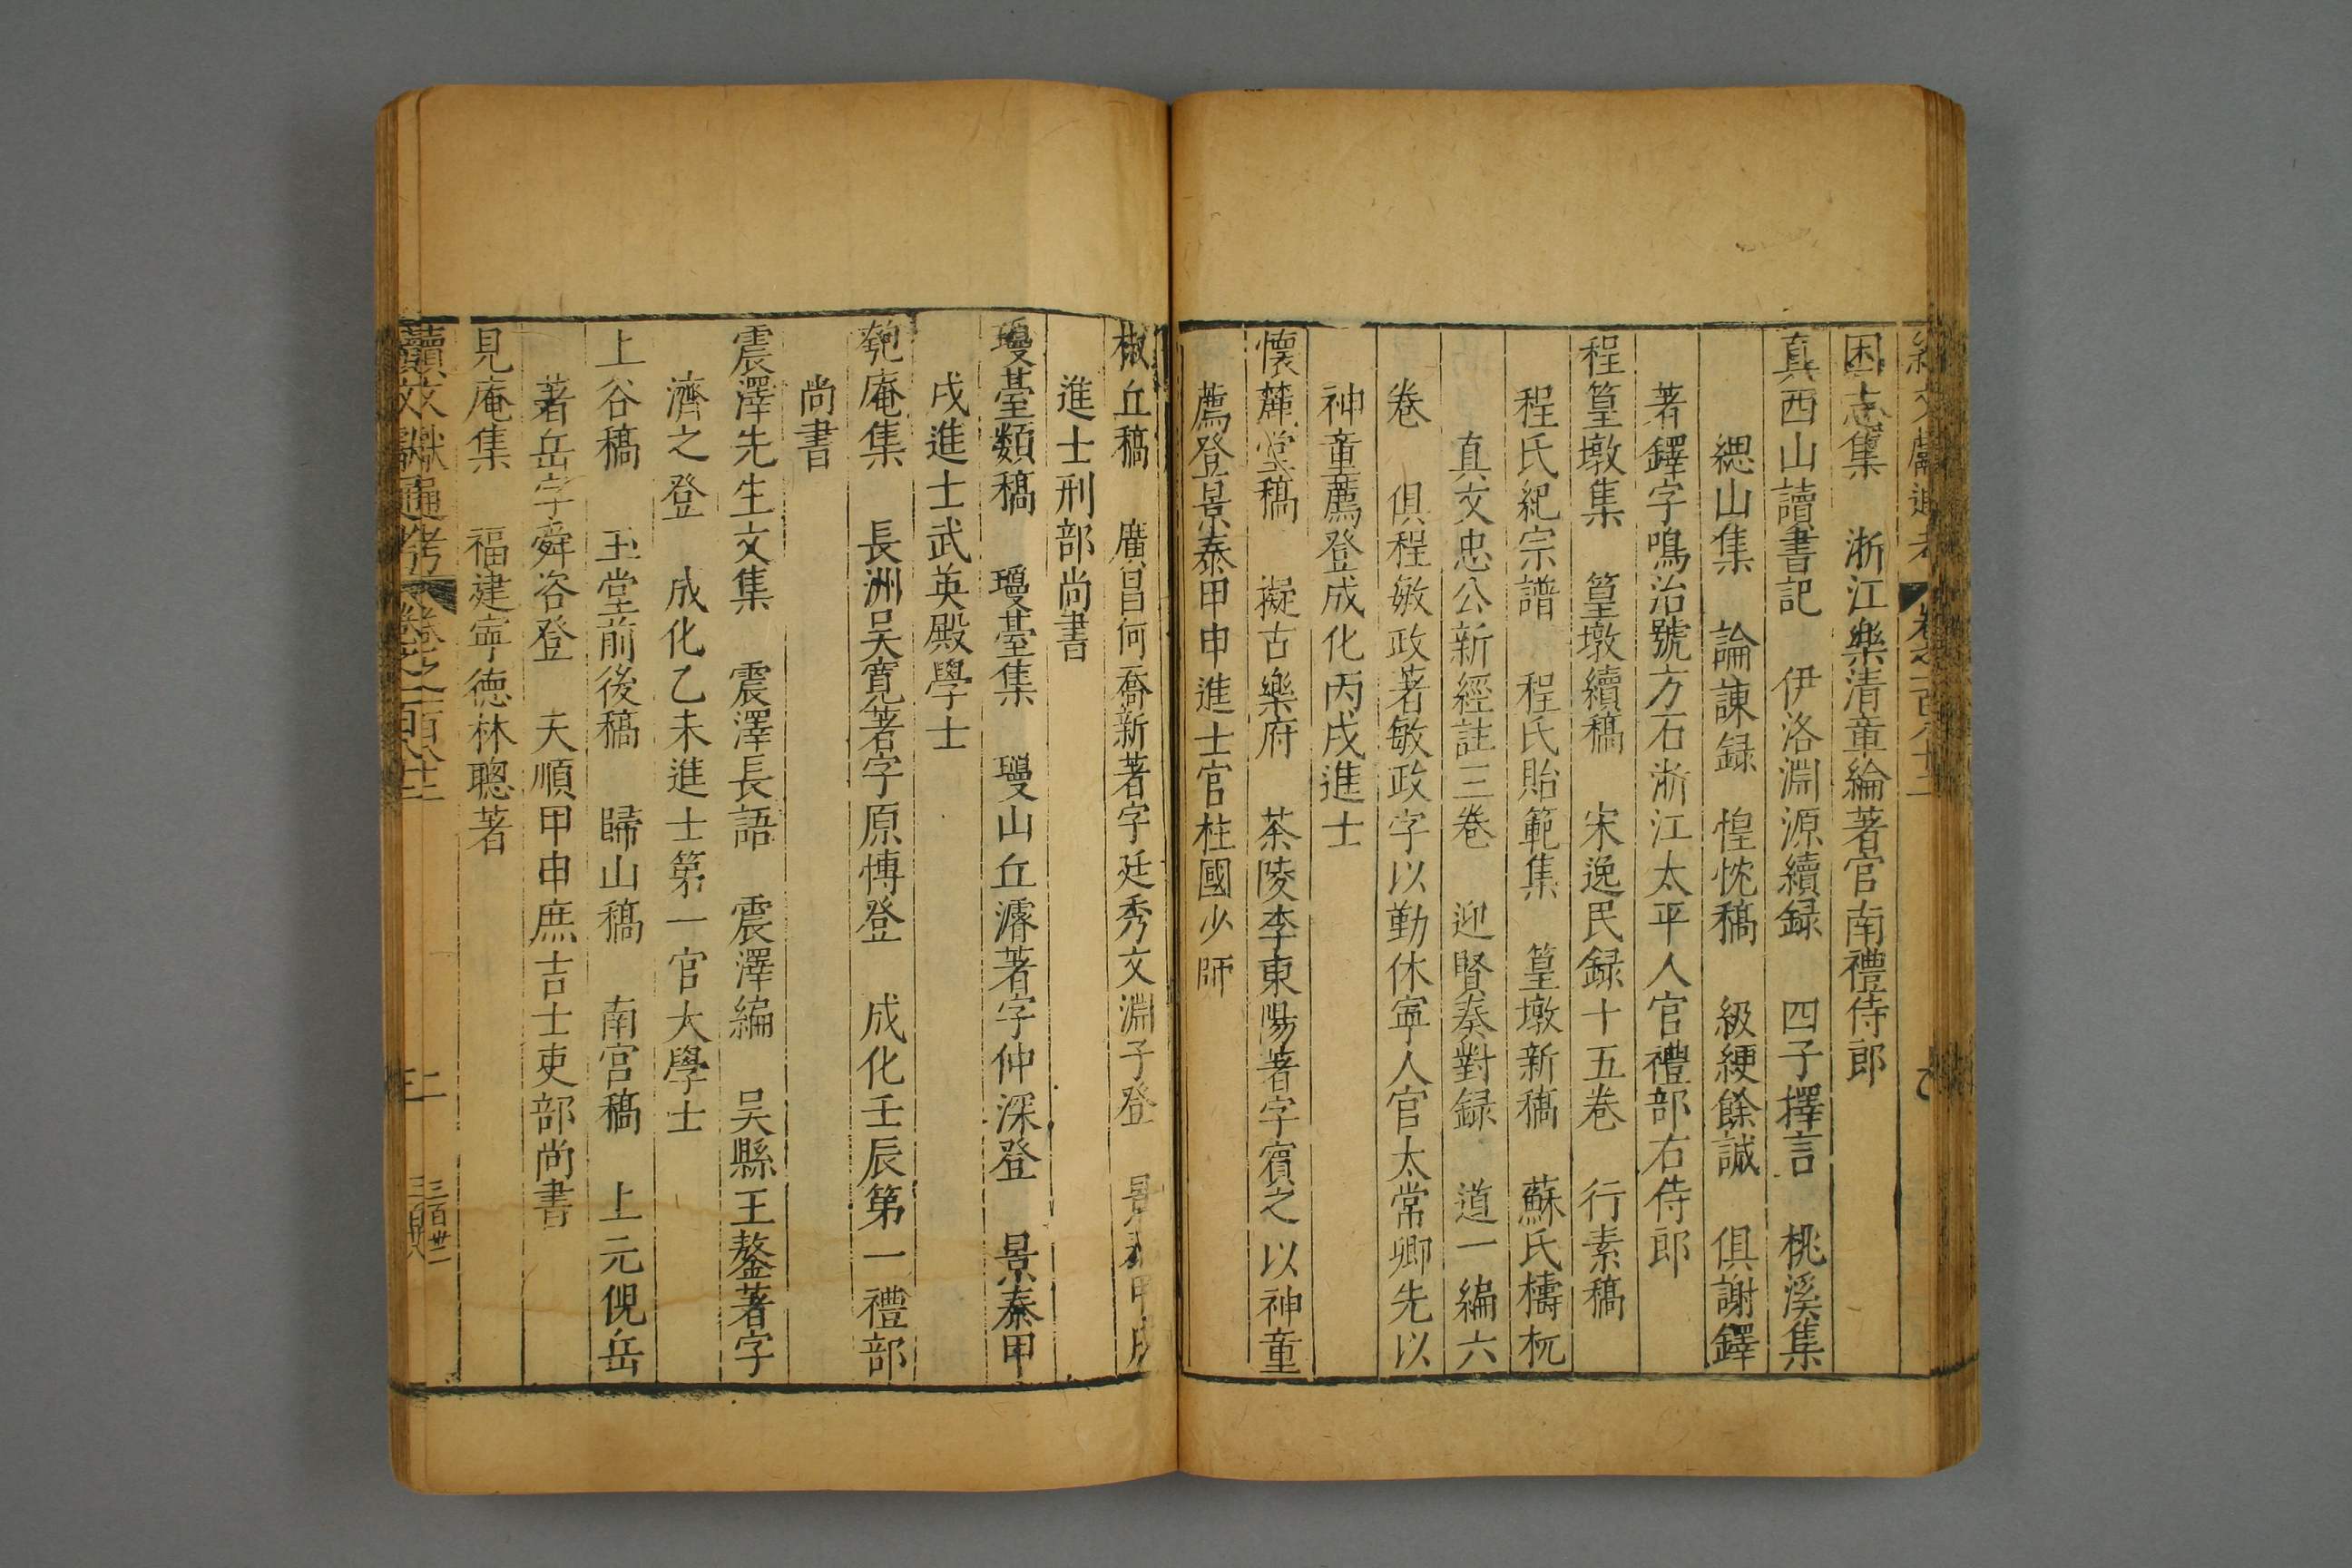 困志集　浙江樂清章綸著官南禮侍郎
真西山讀書記　伊洛淵源續録　四子擇言　桃溪集
緦山集　論諫録　惶忱稿　級綆餘誠　俱謝鐸
著鐸字鳴治號方石浙江太平人官禮部右侍郎
程篁墩集　篁墩續稿　宋逸民録十五卷　行素稿
程氏紀宗譜　程氏貽範集　篁墩新稿　蘇氏檮杌
真文忠公新經註三卷　迎賢奏對録　道一編六
卷　俱程敏政著敏政字以勤休寧人官太常卿先以
神童薦登成化丙戌進士
懷麓堂稿　擬古樂府　茶陵李東陽著字賓之以神童
薦登景泰甲申進士官柱國少師
椒丘稿　廣昌何喬新著字廷秀文淵子登　景泰甲戌
進士刑部尚書
瓊臺類稿　瓊臺集　瓊山丘濬著字仲深登　景泰甲
戌進士武英殿學士
匏庵集　長洲吴寛著字原博登　成化壬辰第一禮部
尚書
震澤先生文集　震澤長語　震澤編　吴縣王鏊著字
濟之登　成化乙未進士第一官大學士
上谷稿　玉堂前後稿　歸山稿　南宫稿　上元倪岳
著岳字舜咨登　天順甲申庶吉士吏部尚書
見庵集　福建寧德林聰著
續文獻通考　卷之一百八十三
三百廿二